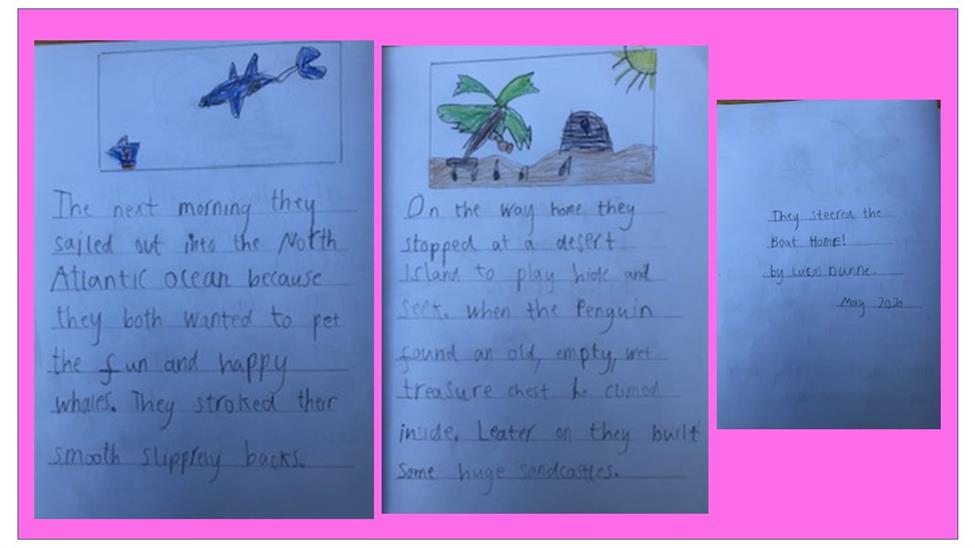 The next morning they
sailed out into the North
Atlantic ocean because
they both wanted to pet
the fun and happy
whales. They stroked their
smooth slipprely backs.
On the way home they
stopped at a desert
Island to play hide and
seek. when the Penguin
found an old, empty, wet
treasure chest he climed
inside. Leater on they built
some huge sandcastles.
They steered the
Boat Home!
by Lucas Dunne.
May 2020